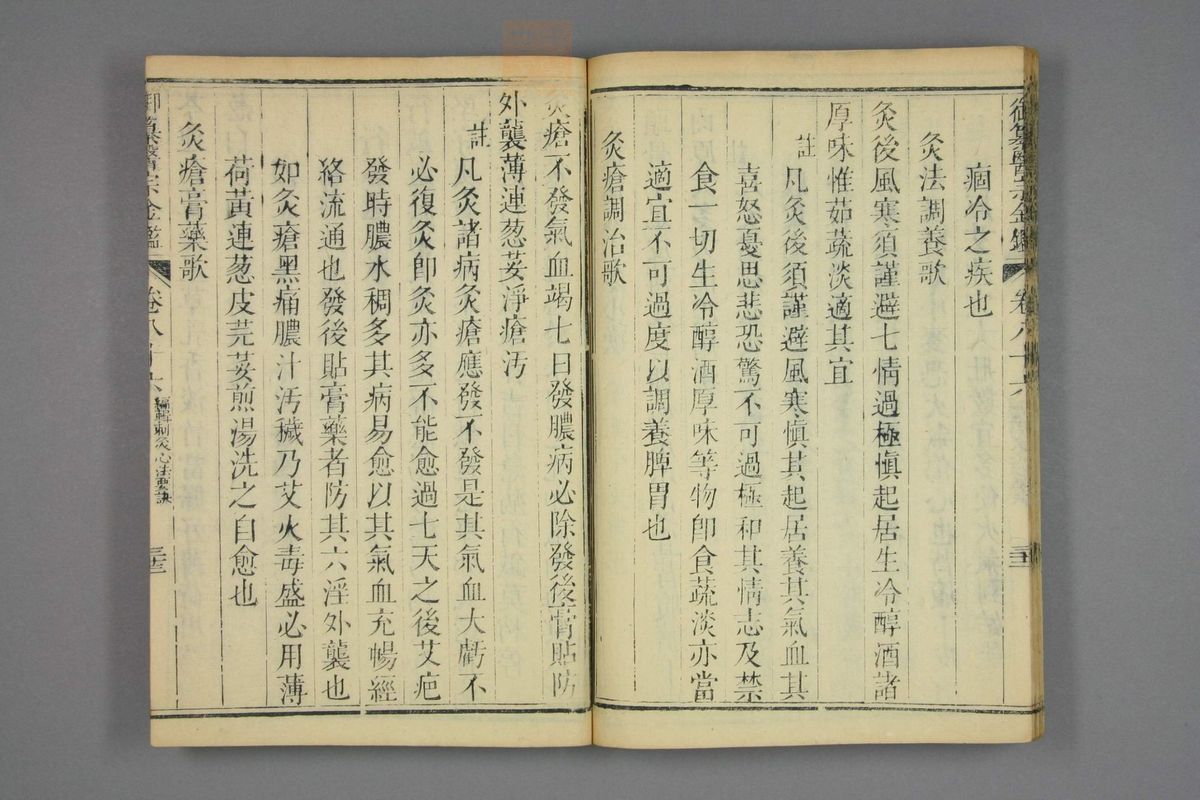 御纂醫宗金鑑 卷八十六
痼冷之疾也
灸法調養歌
灸後風寒須謹避七情過極慎起居生冷醇酒諸
厚味惟茹蔬淡適其宜
註
凡灸後須謹避風寒慎其起居養其氣血其
喜怒憂思悲恐驚不可過極和其情志及禁
食一切生冷醇酒厚味等物卽食蔬淡亦當
適宜不可過度以調養脾胃也
灸瘡調治歌
灸瘡不發氣血竭七日發膿病必除發後膏貼防
外襲薄連葱荽淨瘡汚
註
凡灸諸病灸瘡應發不發是其氣血大虧不
必復灸卽灸亦多不能愈過七天之後艾疤
發時膿水稠多其病易愈以其氣血充暢經
絡流通也發後貼膏藥者防其六淫外襲也
如灸瘡黑痛膿汁汚穢乃艾火毒盛必用薄
荷黃連葱皮芫荽煎湯洗之自愈也
灸瘡膏藥歌
御纂醫宗金鑑 卷八十六 編輯刺灸心法要訣 三